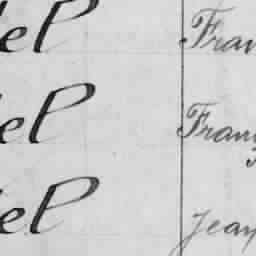 el Fran
el Franç
el Jean